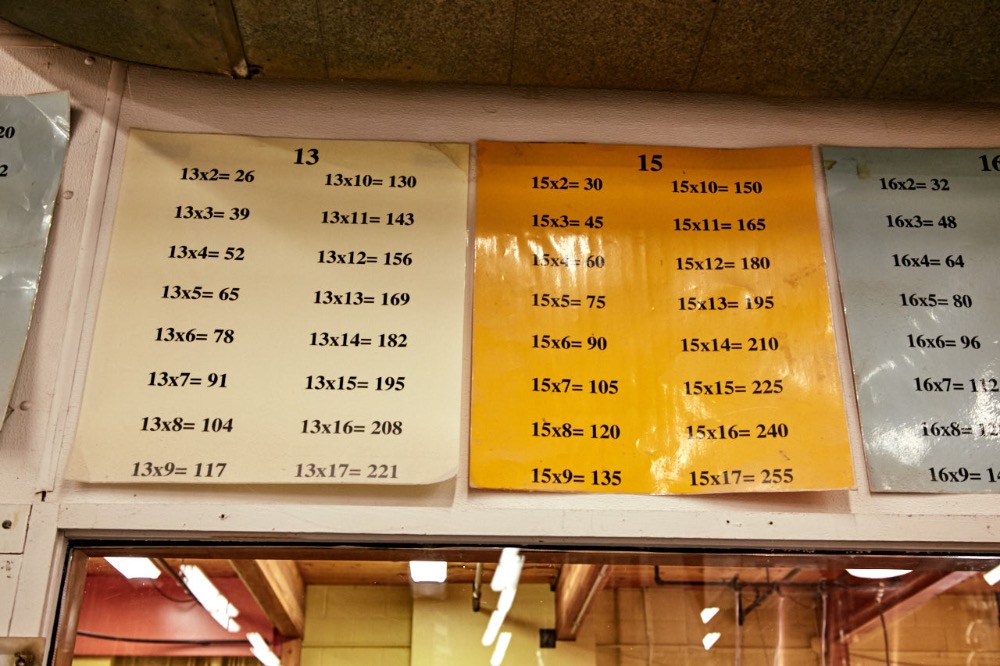 20
2
13
13x2= 26
13x3= 39
13x4= 52
13x5= 65
13x6= 78
13x7= 91
13x8= 104
13x9= 117
13x10= 130
13x11= 143
13x12= 156
13x13= 169
13x14= 182
13x15= 195
13x16= 208
13x17= 221
15
15x2= 30
15x3= 45
15x4= 60
15x5= 75
15x6= 90
15x7= 105
15x8= 120
15x9= 135
15x10= 150
15x11= 165
15x12= 180
15x13= 195
15x14= 210
15x15= 225
15x16= 240
15x17= 255
16
16x2= 32
16x3= 48
16x4= 64
16x5= 80
16x6= 96
16x7= 112
16x8= 12
16x9= 14